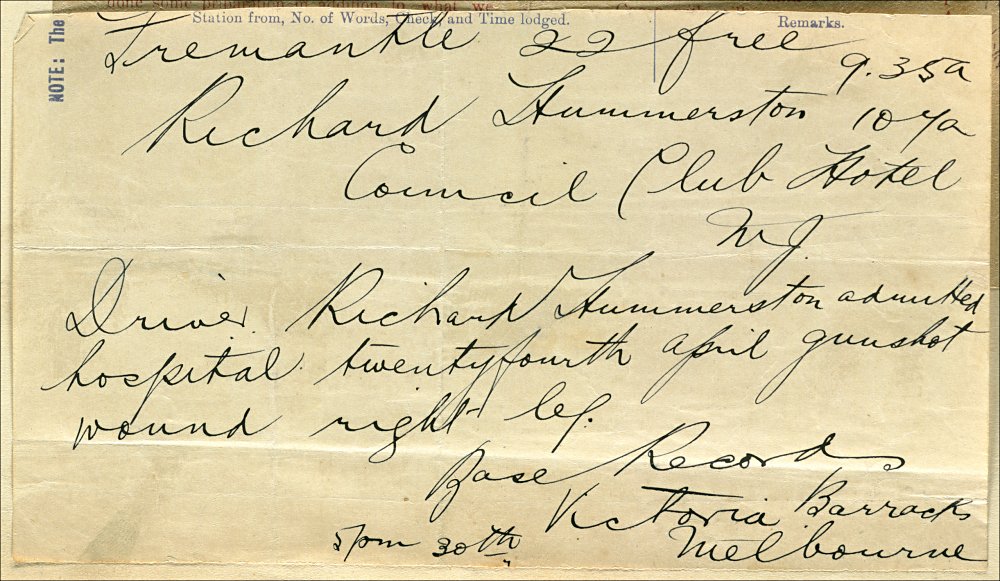 done some preparation in addition to what we
Station from, No. of Words, Check, and Time lodged.
Remarks.
NOTE: The
Fremantle 22 free
9.35a
Richard Hummerston 10 7a
Council Club Hotel
Driver Richard Hummerston admitted
hospital twentyfourth april gunshot
wound right leg.
Base Records
Victoria Barracks
5pm 30th Melbourne